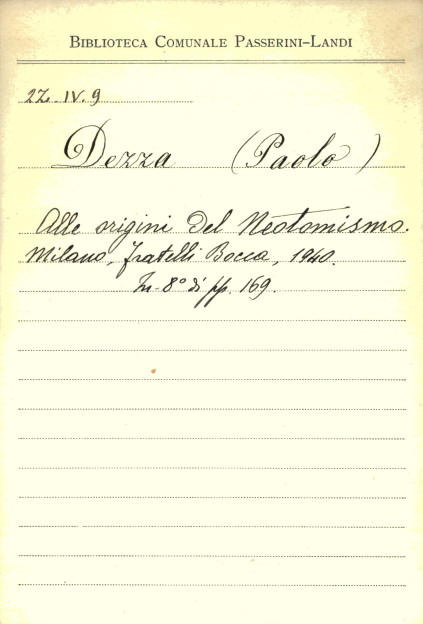 BIBLIOTECA COMUNALE PASSERINI-LANDI
2Z. IV. 9
Dezza (Paolo)
Alle origini del Neotomismo.
Milano, Fratelli Bocca, 1940.
In-8° di pp. 169.